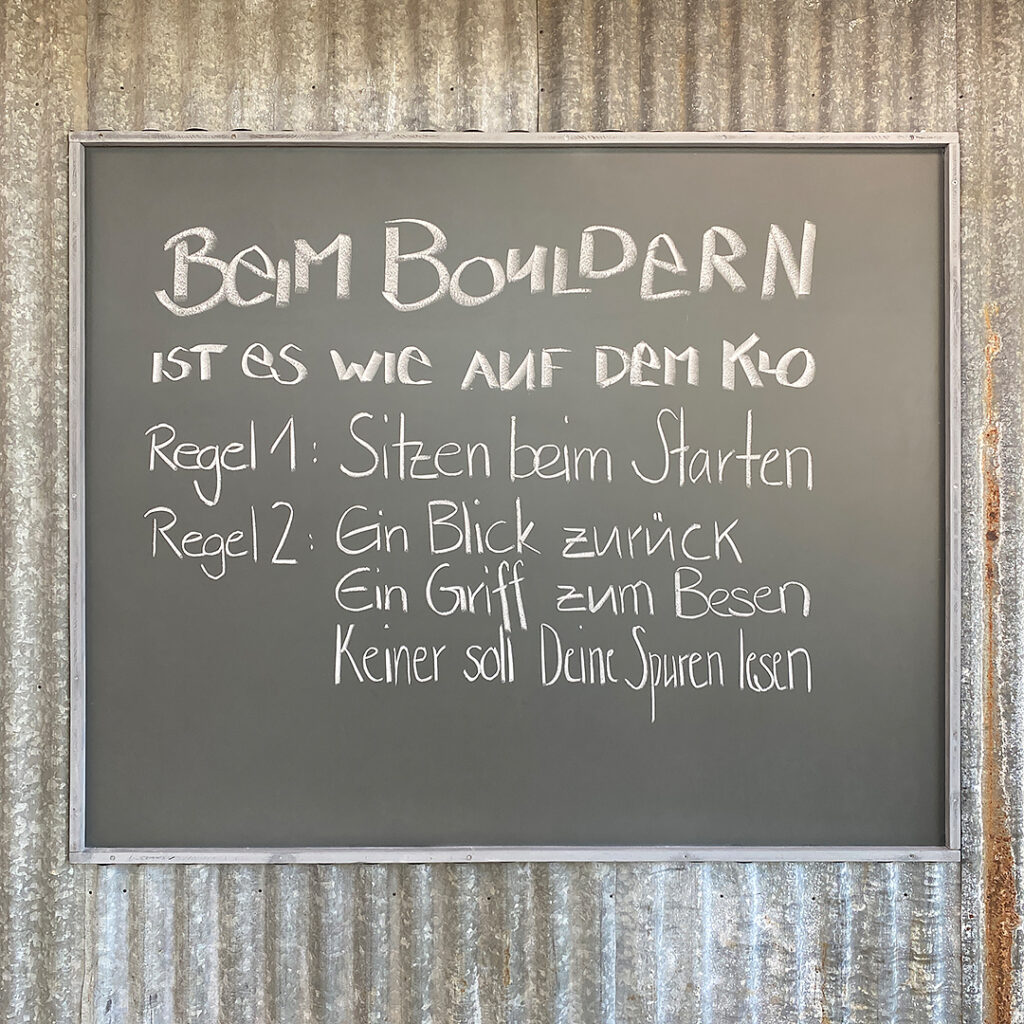 BEIM BOULDERN
IST ES WIE AUF DEM KLO
Regel 1: Sitzen beim Starten
Regel 2: Ein Blick zurück
Ein Griff zum Besen
Keiner soll Deine Spuren lesen